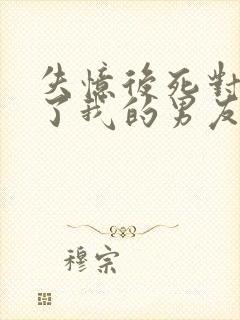 失憶後死對
了我的男友
穆宗